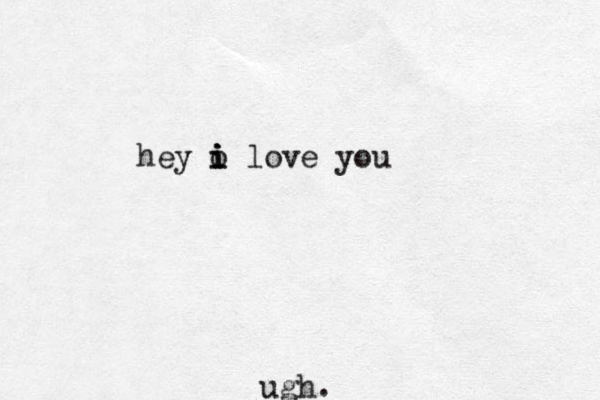 hey i love you
ugh.